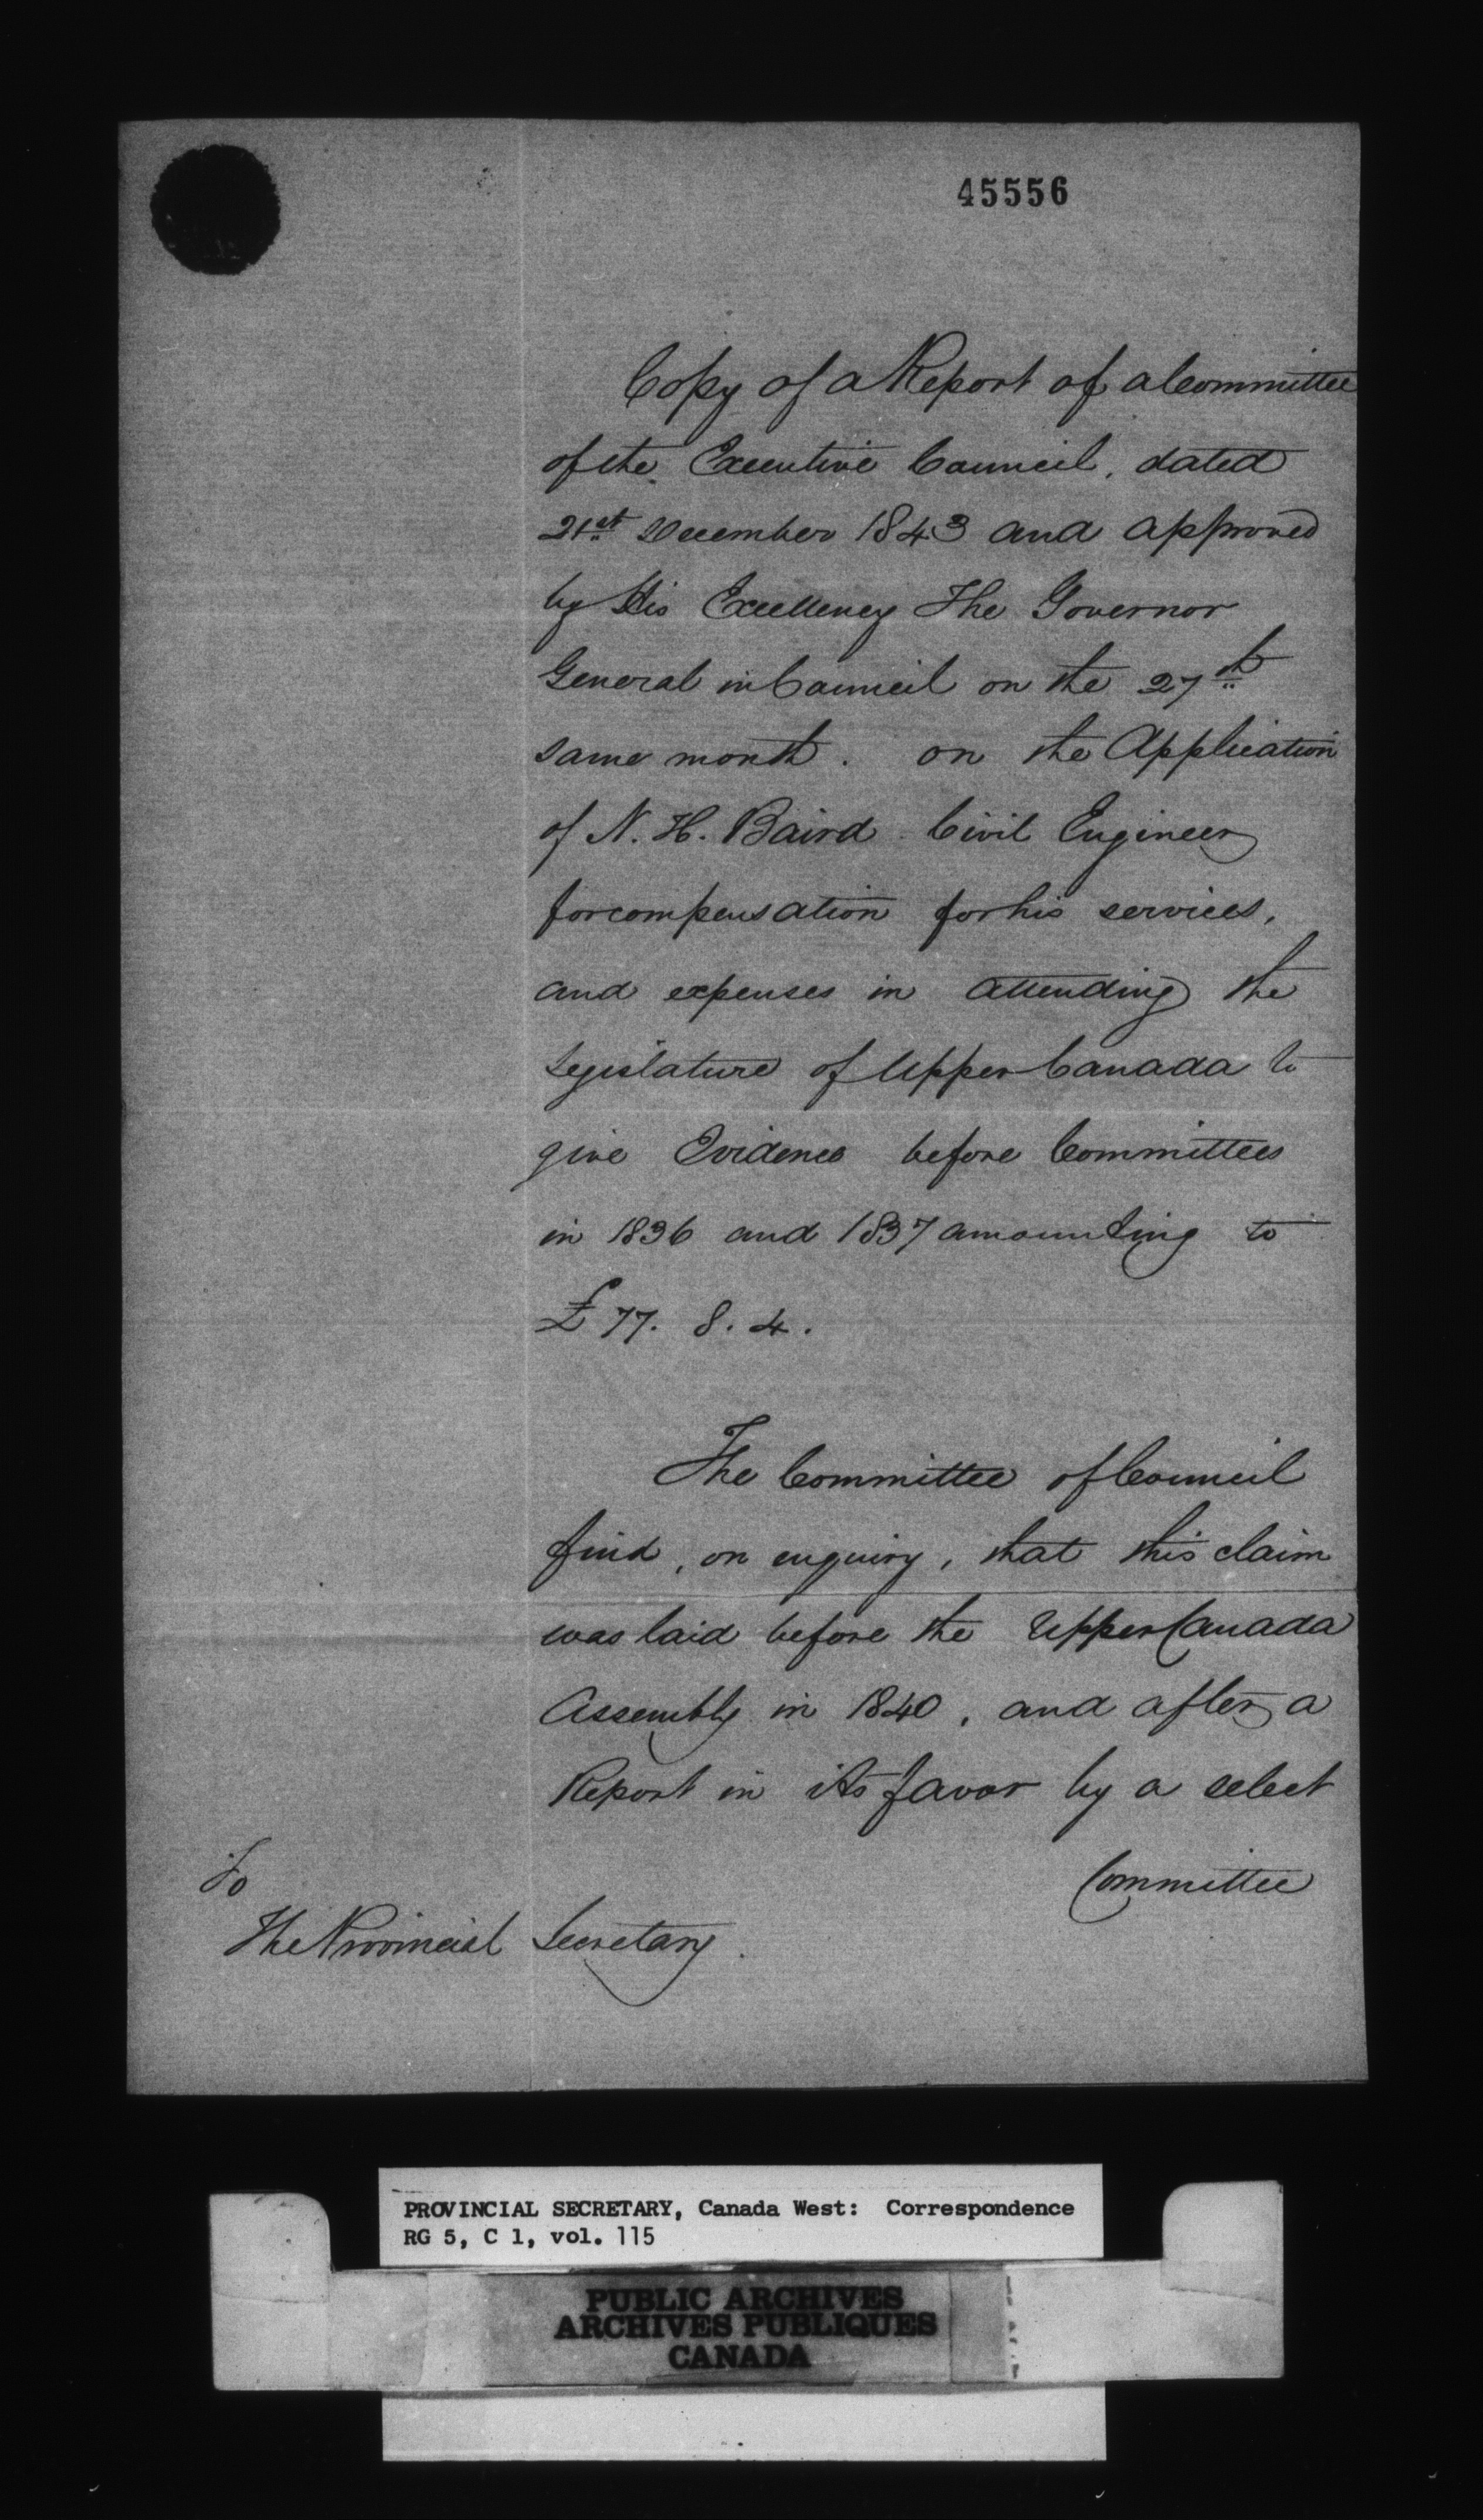 45556
Copy of a Report of a Committee
of the Executive Council, dated
21st December 1843 and approved
by His Excellency The Governor
General in Council on the 27th
same month. on the Application
of N. H. Baird Civil Engineer
for compensation for his services,
and expenses in attending the
Legislature of Upper Canada to
give Evidence before Committees
in 1836 and 1837 amounting to
£77. 8. 4.
The Committee of Council
find, on enquiry, that this claim
was laid before the Upper Canada
Assembly in 1840, and after a
Report in its favor by a select
Committee
To
The Provincial Secretary.
PROVINCIAL SECRETARY, Canada West: Correspondence
RG 5, C 1, vol. 115
PUBLIC ARCHIVES
ARCHIVES PUBLIQUES
CANADA